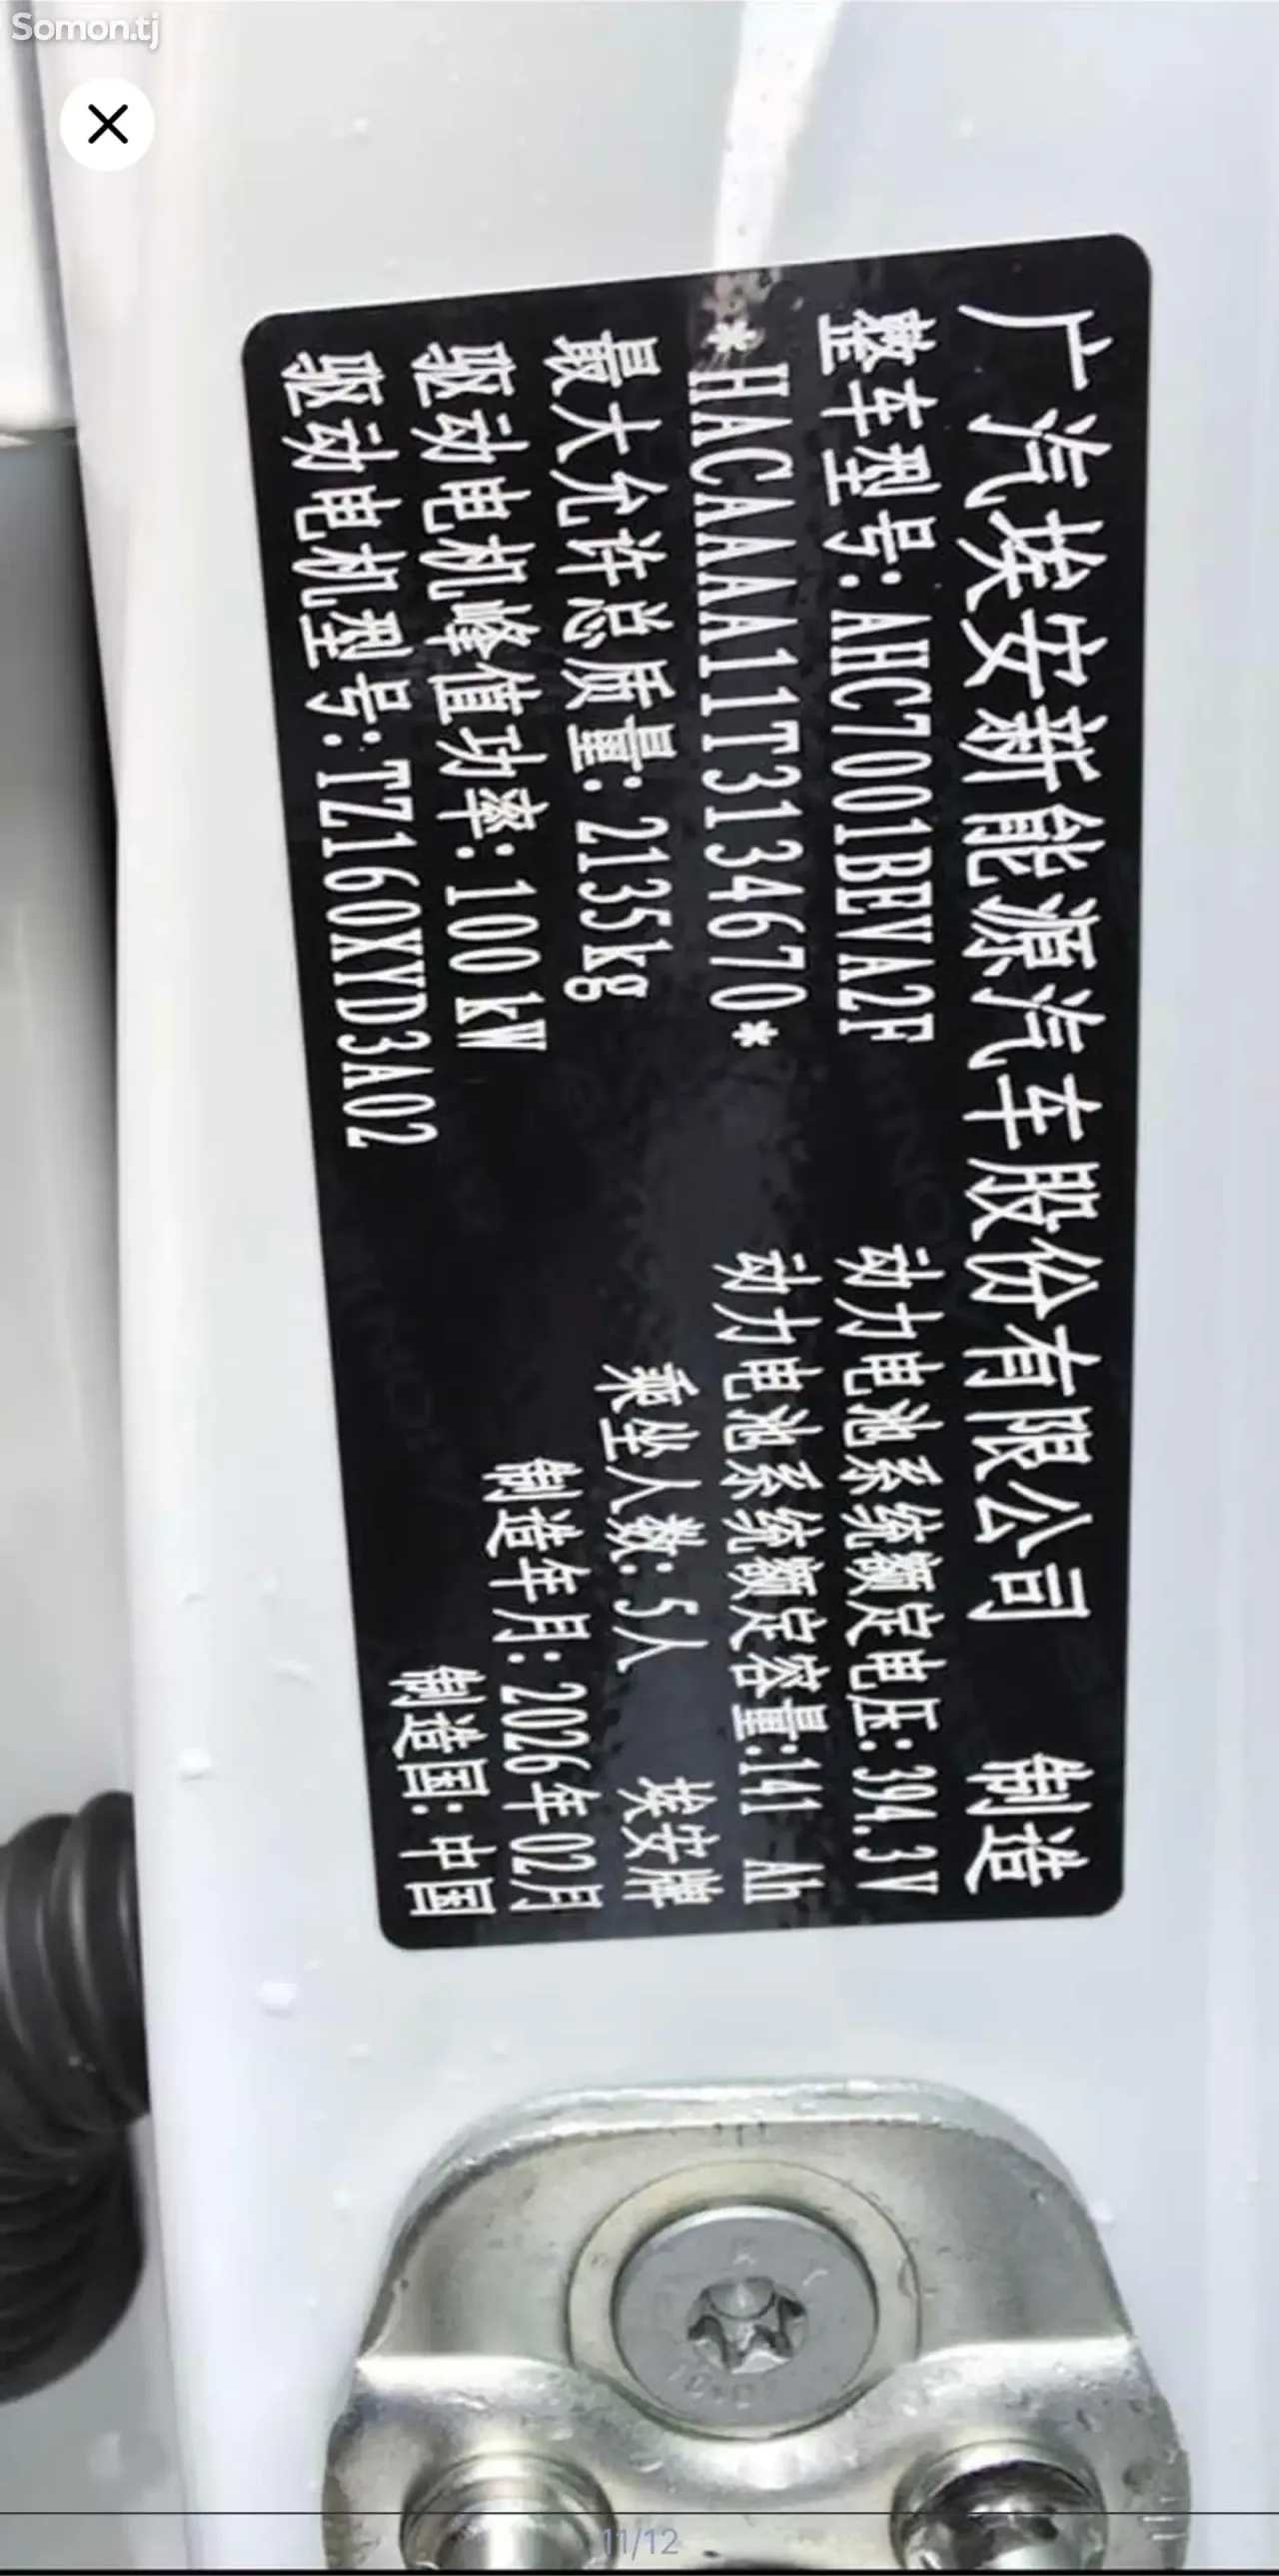 Somon.tj
广汽埃安新能源汽车股份有限公司 制造
整车型号:AHC7001BEVA2F 动力电池系统额定电压:394.3V
*HACAAA11T3134670* 动力电池系统额定容量:141 Ah
最大允许总质量:2135kg 乘坐人数:5人 埃安牌
驱动电机峰值功率:100kW 制造年月:2026年02月
驱动电机型号:TZ160XYD3A02 制造国:中国
11/12